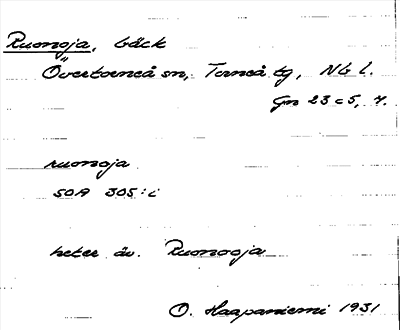 Ruonoja, bäck
Övertorneå sn, Torneå tg, Nb l.
Gn 23 c 5, 7.
ruonoja
SOA 305:i
heter äv. Ruonooja
O. Haapaniemi 1931